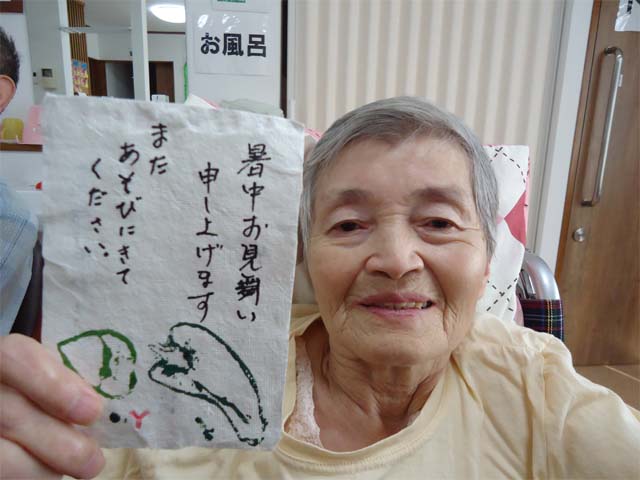 お風呂
暑中お見舞い
申し上げます
また
あそびにきて
ください。
Y